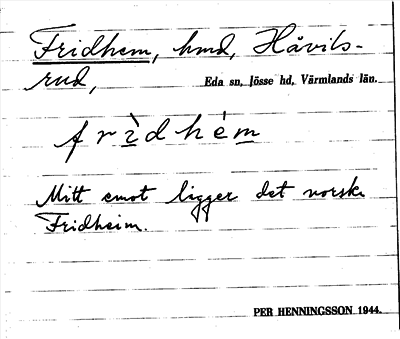 Fridhem, hmd, Håvils-
rud,
Eda sn, Jösse hd, Värmlands län.
f r ì d h é m
Mitt emot ligger det norska
Fridheim.
PER HENNINGSSON 1944.